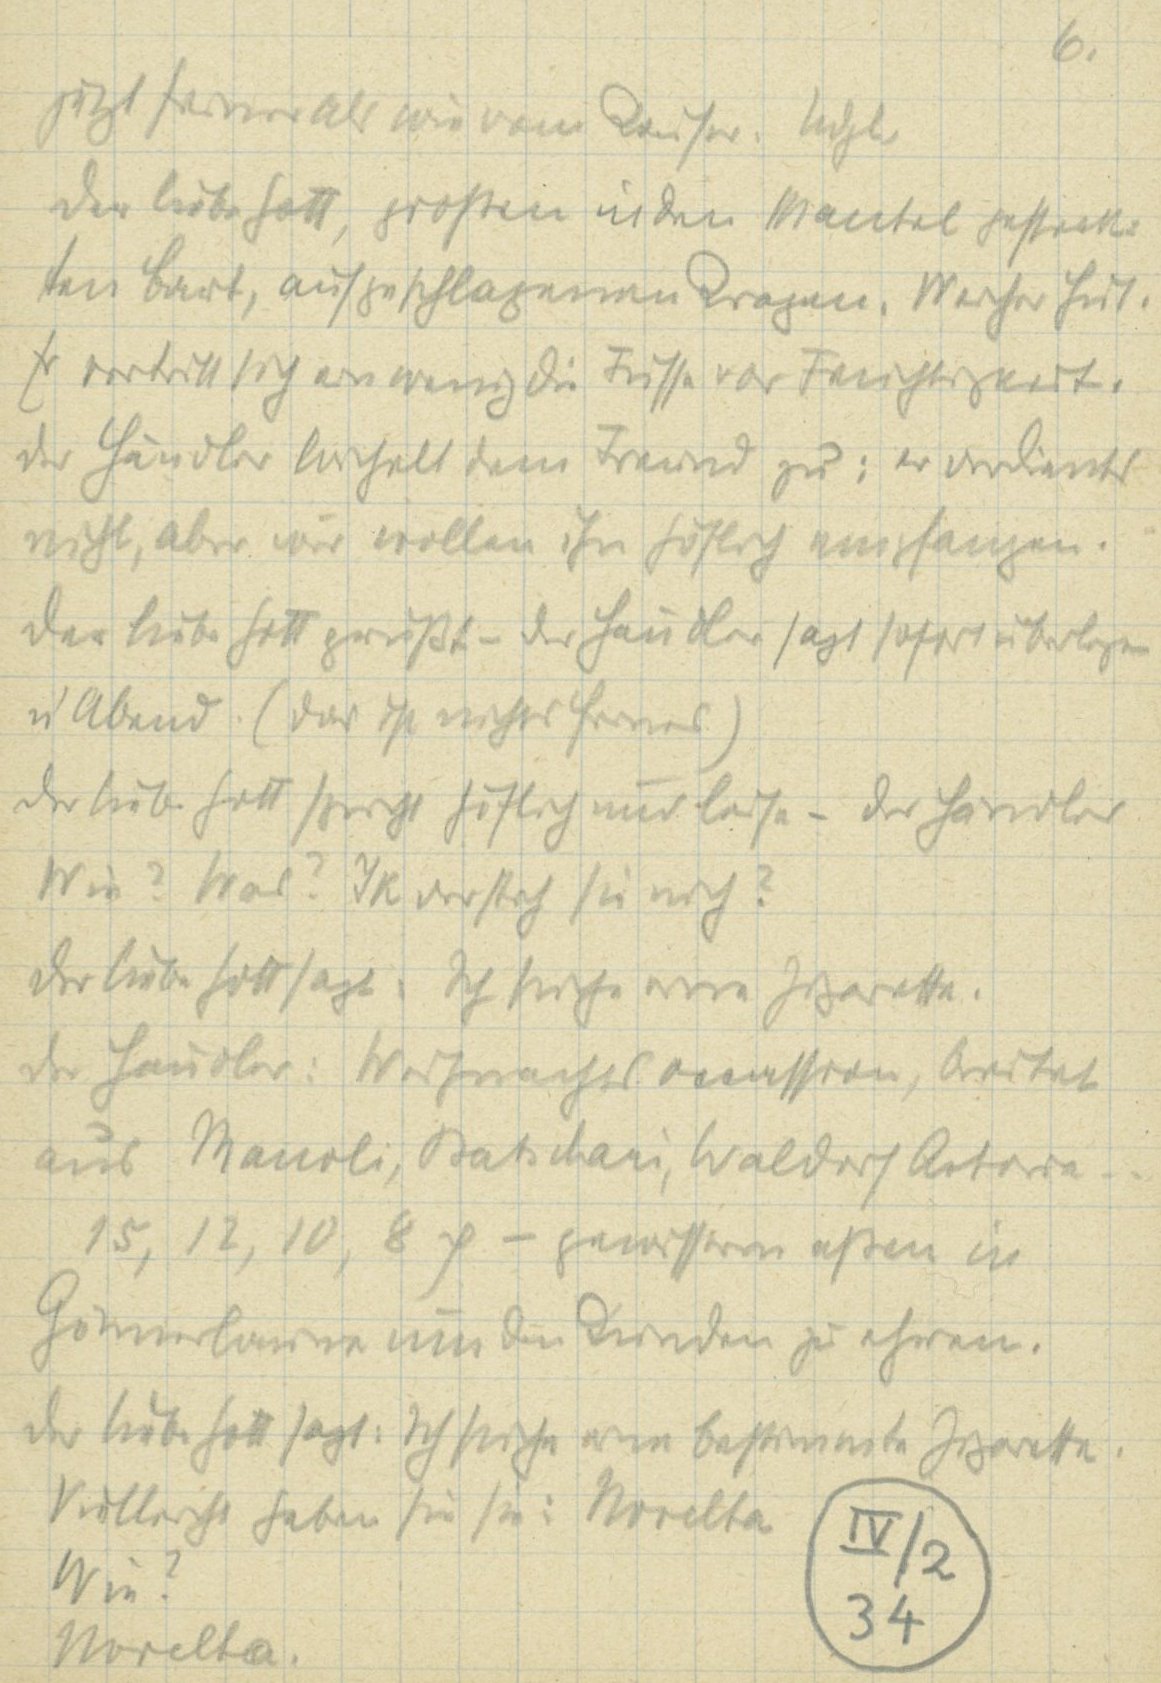 6.
jetzt feiner als wie vom Kaiser.
Der liebe Gott, großen in den Mantel gesteck-
ten Bart, aufgeschlagenen Kragen. Weicher Hut.
Er vertritt sich ein wenig die Füsse vor Feuchtigkeit.
Der Händler lächelt dem Freund zu: er verdients
nicht, aber wir wollen ihn höflich empfangen.
Der liebe Gott grüßt – der Händler sagt sofort überlegen
n' Abend. (Das ist nichts feines)
Der liebe Gott spricht höflich und leise – der Händler
Wie? Was? Ik versteh sie nich?
Der liebe Gott sagt: Ich suche eine Zigarette.
Der Händler: Weihnachts occassion, breitet
aus Manoli, Batschari, Waldorf Astoria ..
15, 12, 10, 8 – gewissermaßen in
Gönnerlaune um den Kunden zu ehren.
Der liebe Gott sagt: Ich suche eine bestimmte Zigarette.
Vielleicht haben sie sie: Novelta
Wie?
Novelta.
IV/2
34